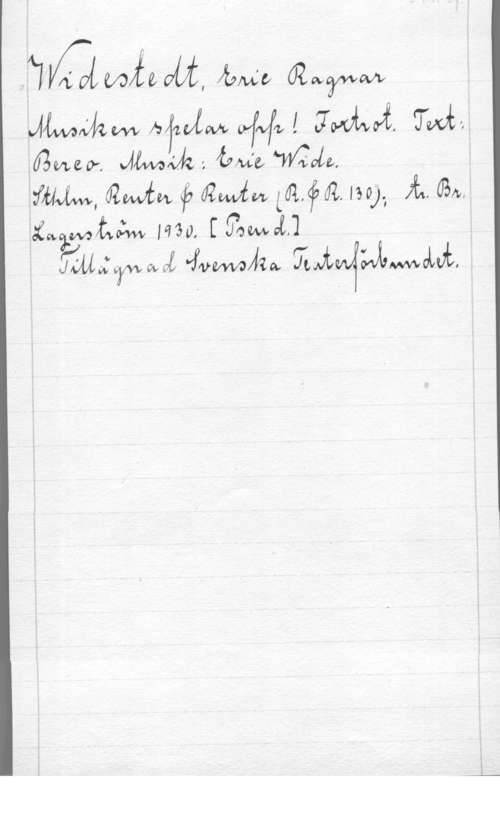 Widestedt, Eric Ragnar
Musiken spelar opp! Foxtrot. Text:
Bereo. Musik: Eric Wide.
Sthlm, Reuter & Reuter (R. & R. 130); tr. Br.
Lagerström 1930. [Pseud.]
Tillägnad Svenska Teaterförbundet.